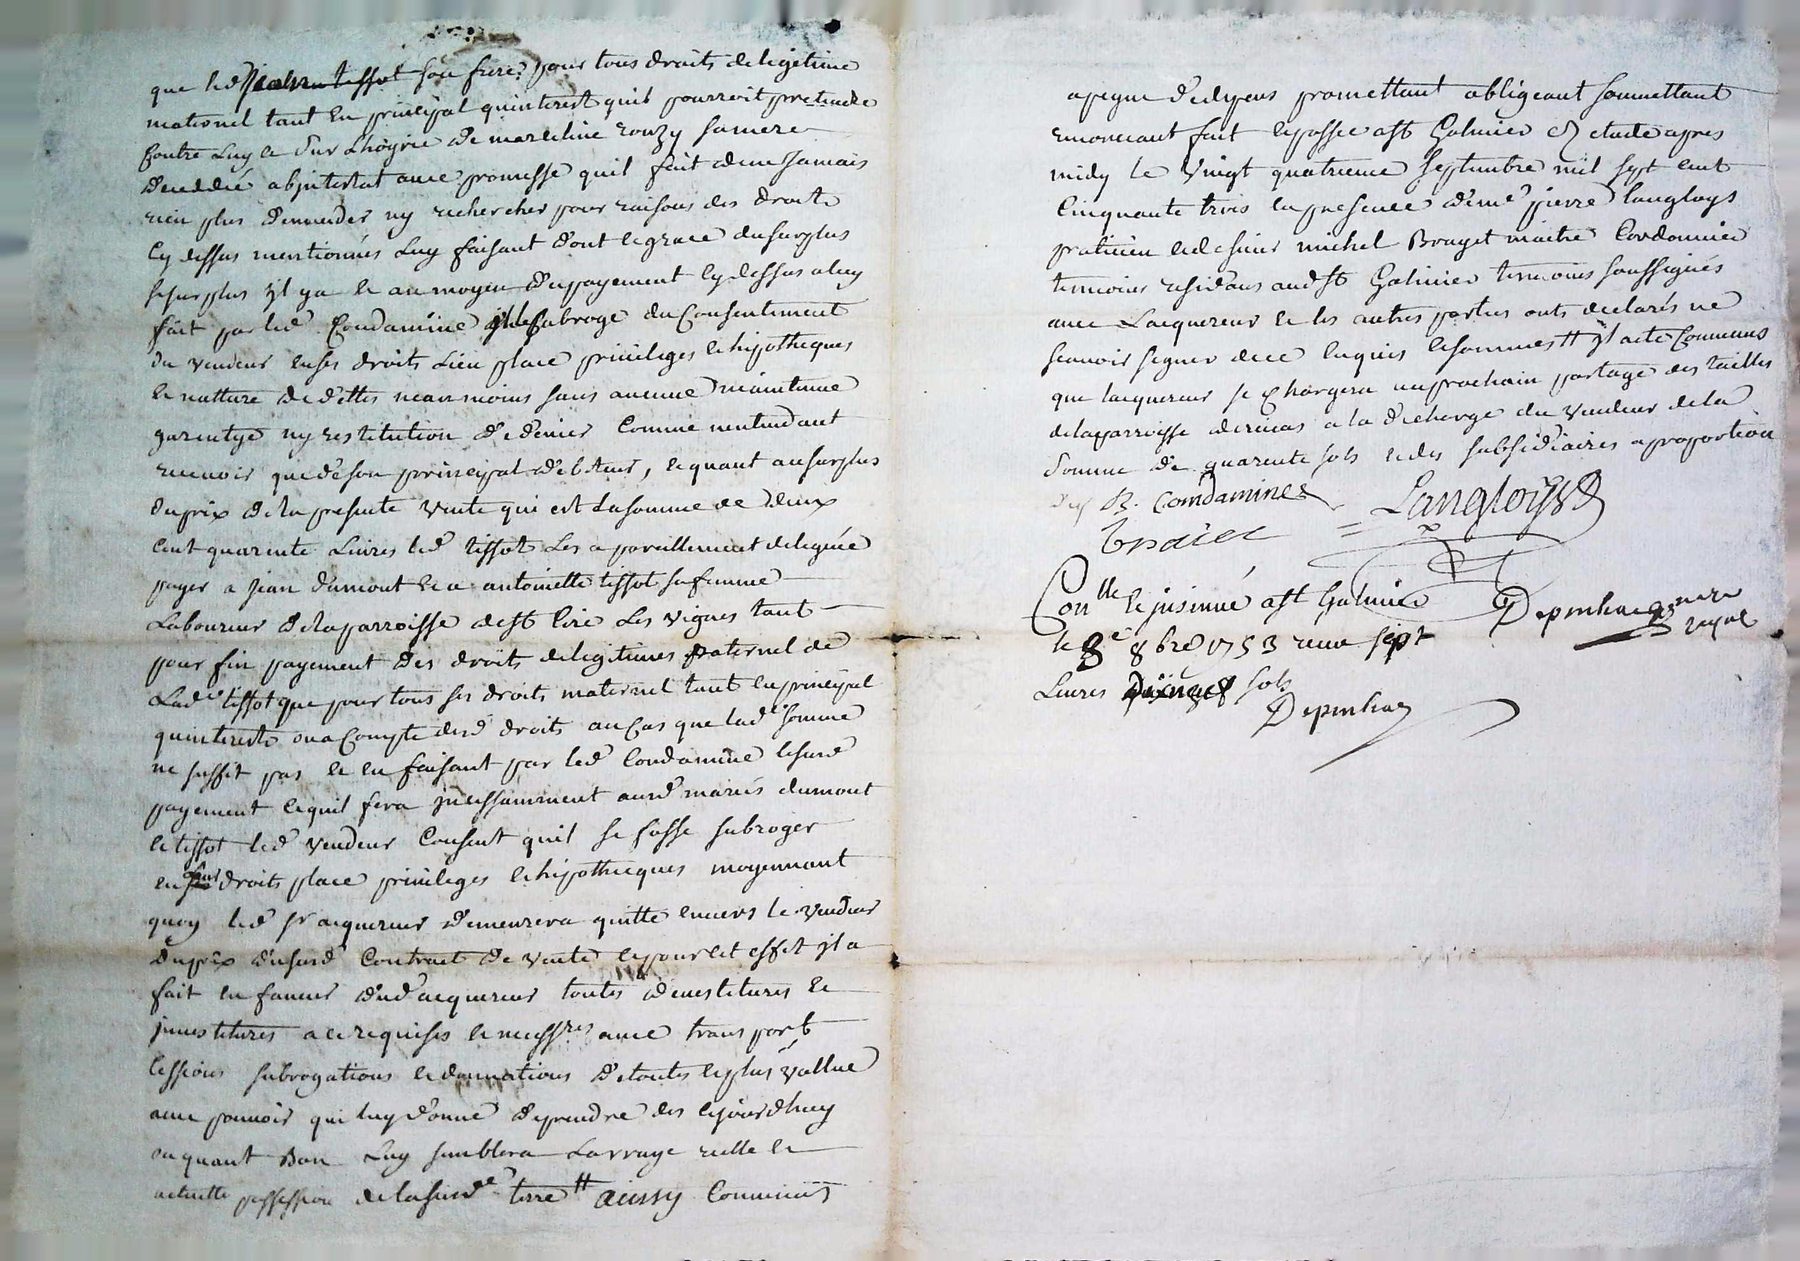 que led Jean tissot son frere pour tous droits de legitime
maternel tant en principal quinterest quil pourroit pretendre
contre Luy et sur Lhoyrie de marceline rouzy sa mere
deceddée abjntestat avec promesse quil fait de ne Jamais
rien plus demander ny rechercher pour raisons des droits
Cy dessus mentionnés Luy faisant dont et grace du surplus
sy surplus yl ya et au moyen du payement Cy dessus a luy
fait par led Condamine jl le subroge du Consentement
du vendeur en ses droits Lieu place privileges et hipotheques
et natture de dettes neanmoins sans aucune maintenue
garentye ny restitution de denier Comme nentendant
recevoir que de son principal debiteur, et quant au surplus
du prix de la presente vente qui est La somme de deux
Cent quarente Livres led tissot Les a pareillement delegué
payer a Jean dumont et a antoinette tissot sa femme
Laboureur de la parroisse de st Cire Les vignes tant
pour fin payement des droits de legitimes paternel de
Lade tissot que pour tous ses droits maternel tant en principal
quinterests ou a Compte desd droits au Cas que lade somme
ne suffit pas et en faisant par led Condamine lesusd
payement Ce quil fera jncessamment ausd mariés dumont
et tissot led vendeur Consent quil se fasse subroger
en leurs droits place privileges et hipotheques moyennant
quoy led sr acquereur demeurera quitte envers le vendeur
du prix du susd Contract de vente et pour cet effet jl a
fait en faveur dud acquereur toutes devestitures et
jnvestitures a ce requises et necessres avec transport
Cessions subrogations et donnations de toutes et plus vallue
avec pouvoir qui luy donne de prendre des ce jourdhuy
ou quant Bon Luy semblera La vraye reelle et
actuelle possession de la susde terre tt aussy Convenu
a peyne de depens promettant obligeant soumettant
renonceant fait et passé a st Galmier Ez etude apres
midy le vingt quatrieme septembre mil sept cent
Cinquante trois en presence de me pierre langloys
praticien et de sieur michel Bouget maitre Cordonnier
temoins residans aud st Galmier temoins soussignés
avec Lacquereur et les autres parties onts declarés ne
scavoir signer de ce enquis et sommes tt yl a eté Convenus
que lacquereur se Chargera au prochain partage des tailles
de la parroisse de rivas a la decharge du vendeur de la
somme de quarente sols et des subsidiaires a proportion
B. Condamines Langloys
Conlle et jnsinué a st Galmier
le 8e 8bre 1753 receu sept
Livres sols